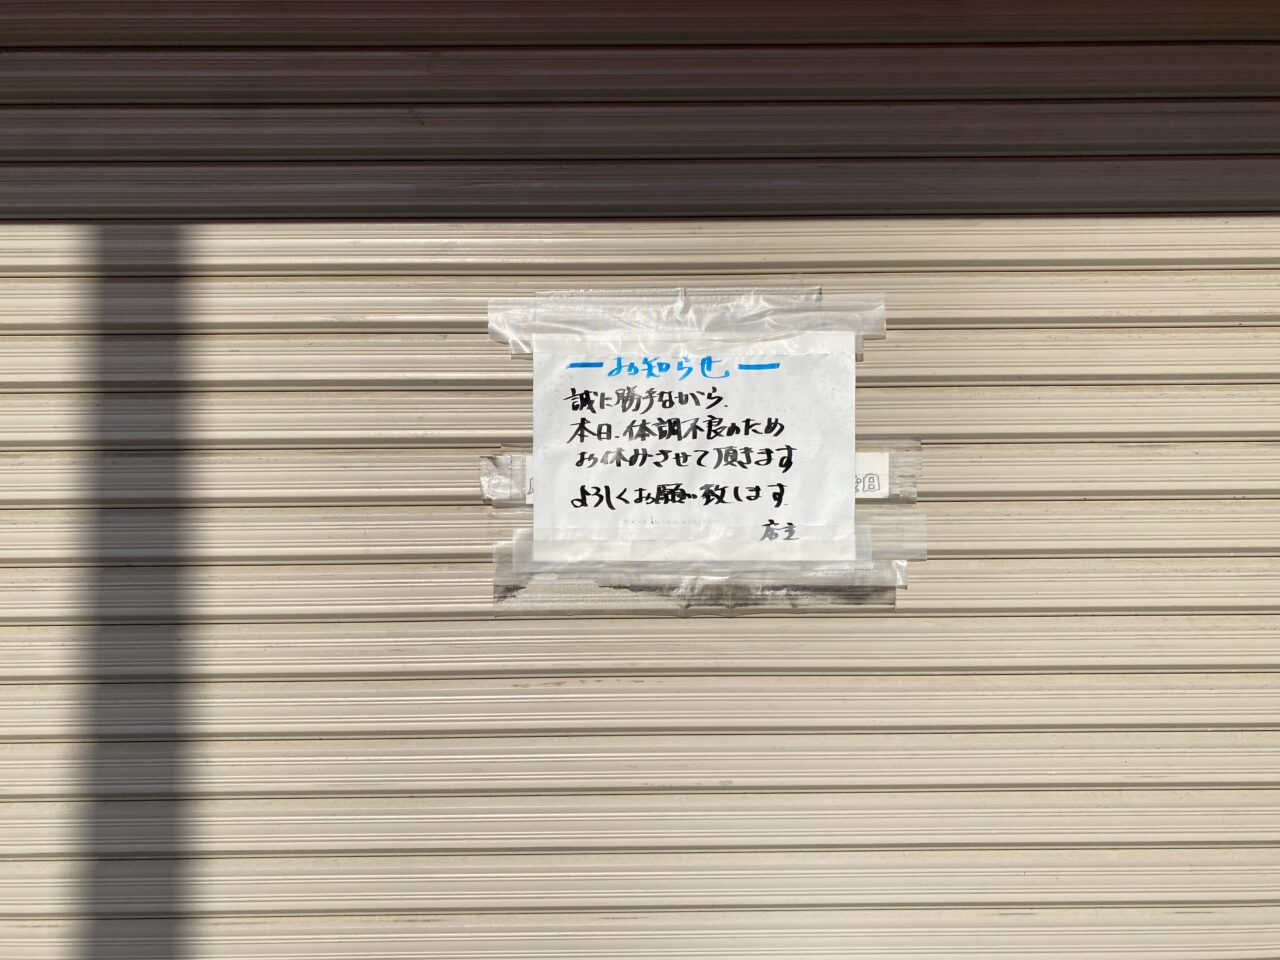 ーお知らせー
誠に勝手ながら、
本日、体調不良のため
お休みさせて頂きます
よろしくお願い致します
店主